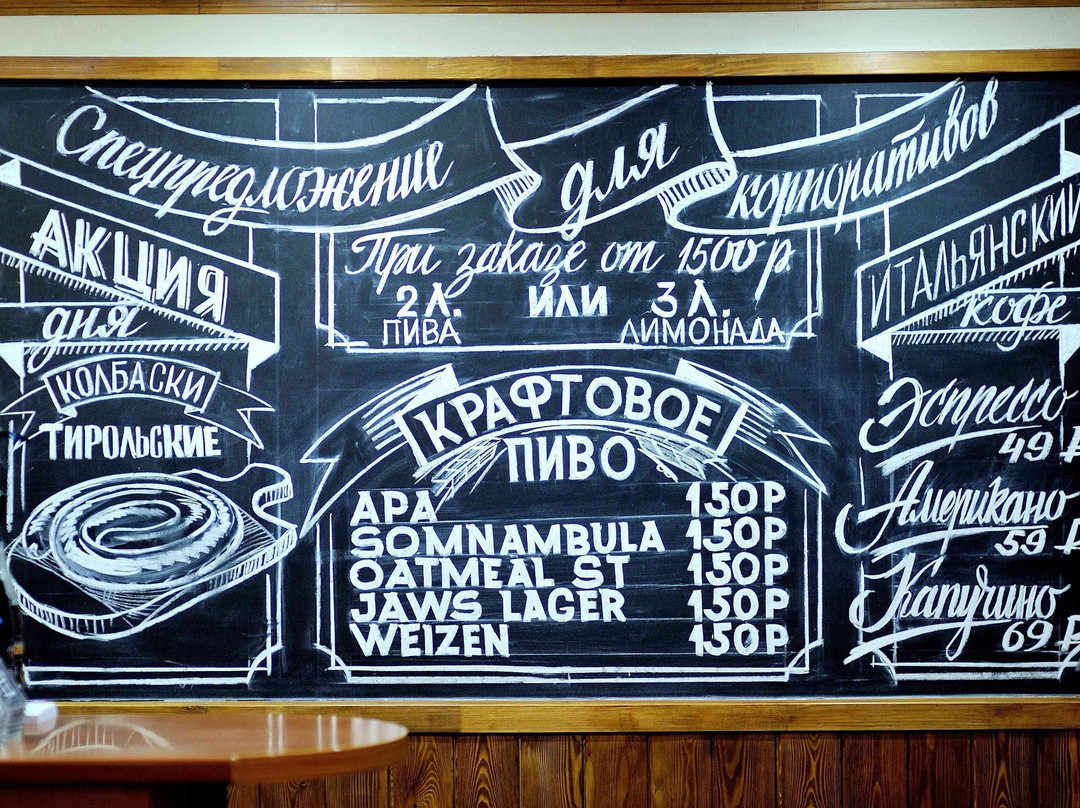 Спецпредложение для корпоративов
При заказе от 1500 р
2 Л. ИЛИ 3 Л.
ПИВА ЛИМОНАДА
АКЦИЯ
дня
КОЛБАСКИ
ТИРОЛЬСКИЕ
КРАФТОВОЕ
ПИВО
APA 150 Р
SOMNAMBULA 150 Р
OATMEAL ST 150 Р
JAWS LAGER 150 Р
WEIZEN 150 Р
ИТАЛЬЯНСКИЙ
кофе
Эспрессо
49 ₽
Американо
59 ₽
Капучино
69 ₽